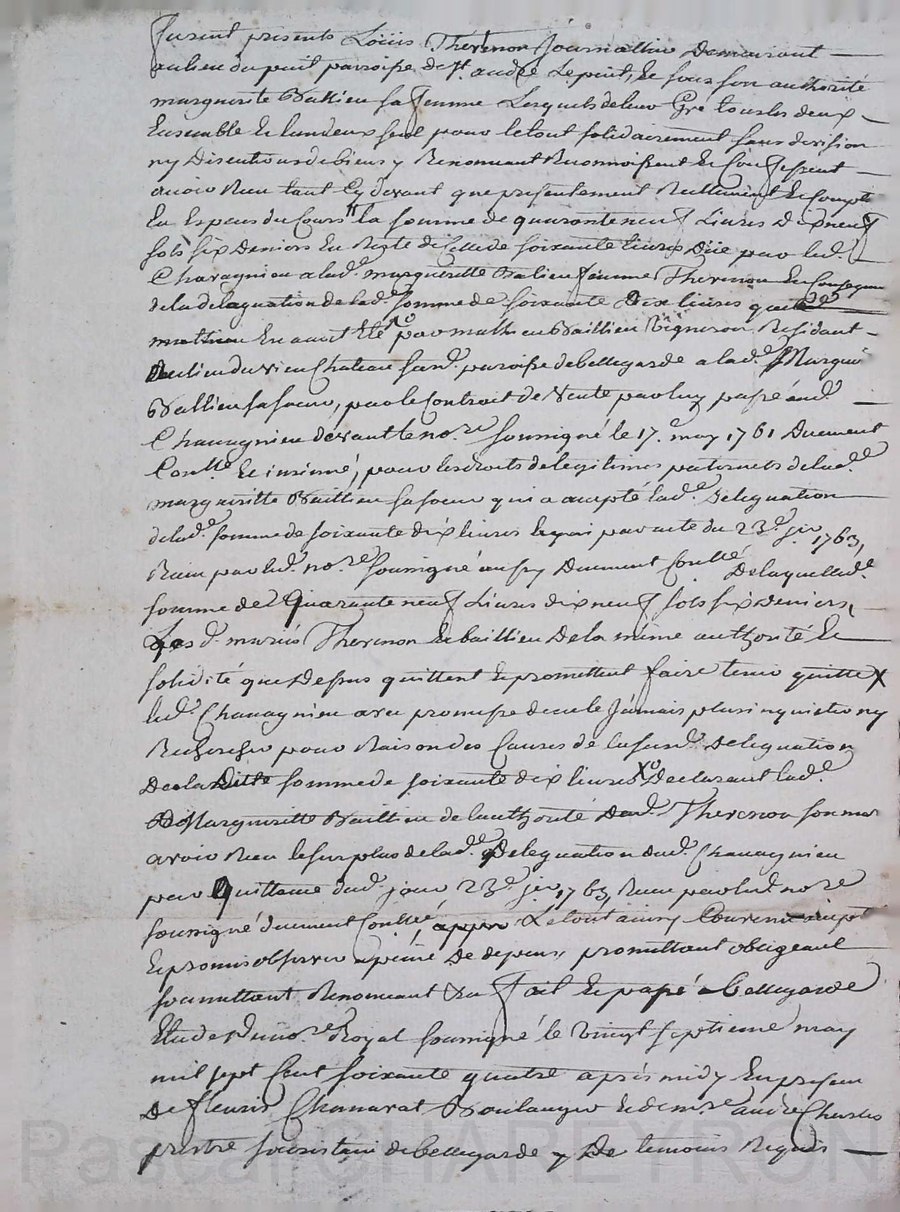 furent presents Loüis Therinon Journallier Demeurant
au lieu du puit paroisse de st. andré Le puit, Et sous son authorité
marguerite Ballieu sa femme Lesquels de leur Gré tous les deux
Ensemble Et l'un deux seul pour le tout solidairement sans division
ny Discution de biens y Renonceant Reconnoissent Et Confessent
avoir Reçu tant Cy devant que presentement Reellement Et Compté
En Especes du Cours la somme de quarante neuf Livres Dixneuf
sols six Deniers En Reste de Celle de soixante livres Düe par led.
Charagnieu a lad.e margueritte Balieu femme Therinon En Consequence
de la delaguation de lad.e somme de soixante Dix livres
mathieu En avoit Eté par mathieu Baillieu Vigneron Residant
Au lieu du vieu Chateau paroisse de bellegarde a lad.e Margte
Ballieu sa soeur, par le Contrait de Vente par luy passé aud.
Chavagnieu devant le nore soussigné le 17.e may 1761 Duement
Conllé Et insinué, pour les droits de legitimes paternels de lad.e
margueritte Baillieu sa soeur qui a accepté lad.e Deleguation
de lad.e somme de soixante dix livres par acte du 23.e jer 1763,
Reçu par led. nore soussigné aussy Duement Conllé De laquelle d.e
somme de Quarante neuf Livres dixneuf sols six Deniers,
Les d. mariés Therinon Et baillieu De la même authorité Et
solidité que Dessus quittent Et promettent faire tenir quitte
led. Chavagnieu avec promesse de ne le Jamais plus inquieter ny
Rechercher pour Raison des Causes de la Deleguation
De la Ditte somme de soixante dix livres Declarant lad.e
Margueritte Baillieu de l'authorité Dud. Therinon son mary
avoir Reçu le surplus de lad.e Deleguation dud. Chavagnieu
par Quittance dud. jour 23.e jer 1763, Reçu par led. nore
soussigné duement Conllé Le tout ainsy Convenu accepté
Et promis observer a peine De depens, promettant obligeant
soumettant Renonceant &a fait Et passé a bellegarde
Etude Du nore Royal soussigné le Vingt septieme may
mil sept Cent soixante quatre après midy En presence
De fleuris Chamarat Boulanger Et de mre andré Charles
prestre societaire de bellegarde y De temoins Requis